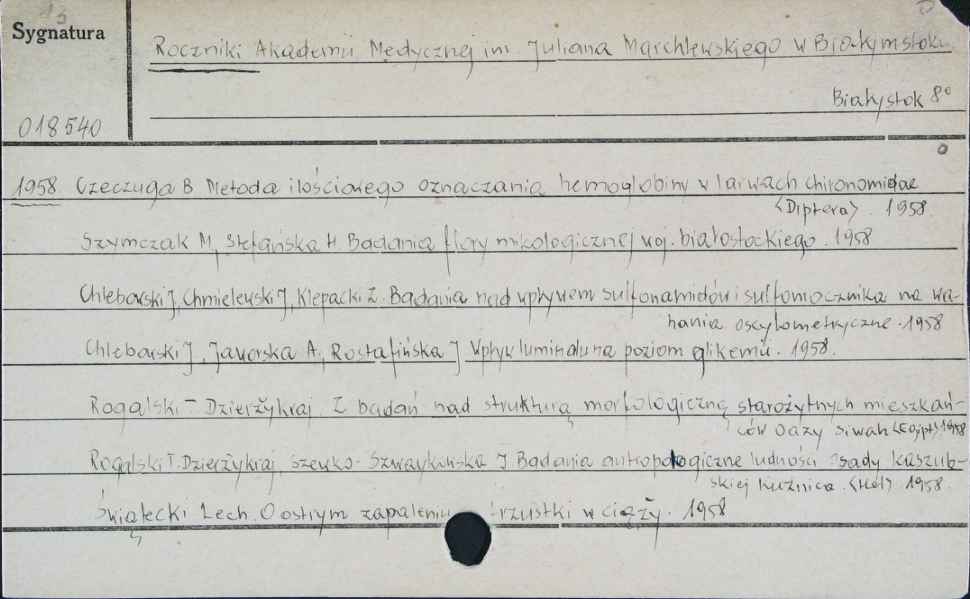 Sygnatura
Roczniki Akademii Medycznej im. Juliana Marchlewskiego w Białymstoku
Białystok 8°
018540
1958 Czeczuga B Metoda ilościowego oznaczania hemoglobiny w larwach chironomidae
<Diptera>. 1958.
Szymczak M, Stefańska H Badania flory mikologicznej woj. białostockiego. 1958
Chlebowski J, Chmielewski J, Klepacki Z. Badania nad wpływem sulfonamidów i sulfomocznika na wa-
hania oscylometryczne. 1958
Chlebowski J, Jaworska A, Rostafińska J Wpływ luminalu na poziom glikemii. 1958.
Rogalski T Dzierżykraj Z badań nad strukturą morfologiczną starożytnych mieszkań-
ców Oazy Siwah <Egipt> 1958
Rogalski T. Dzierżykraj, J Badania antropologiczne ludności osady kaszub-
skiej Kuźnica <Hel> 1958.
Świątecki Lech. O ostrym zapaleniu trzustki w ciąży. 1958